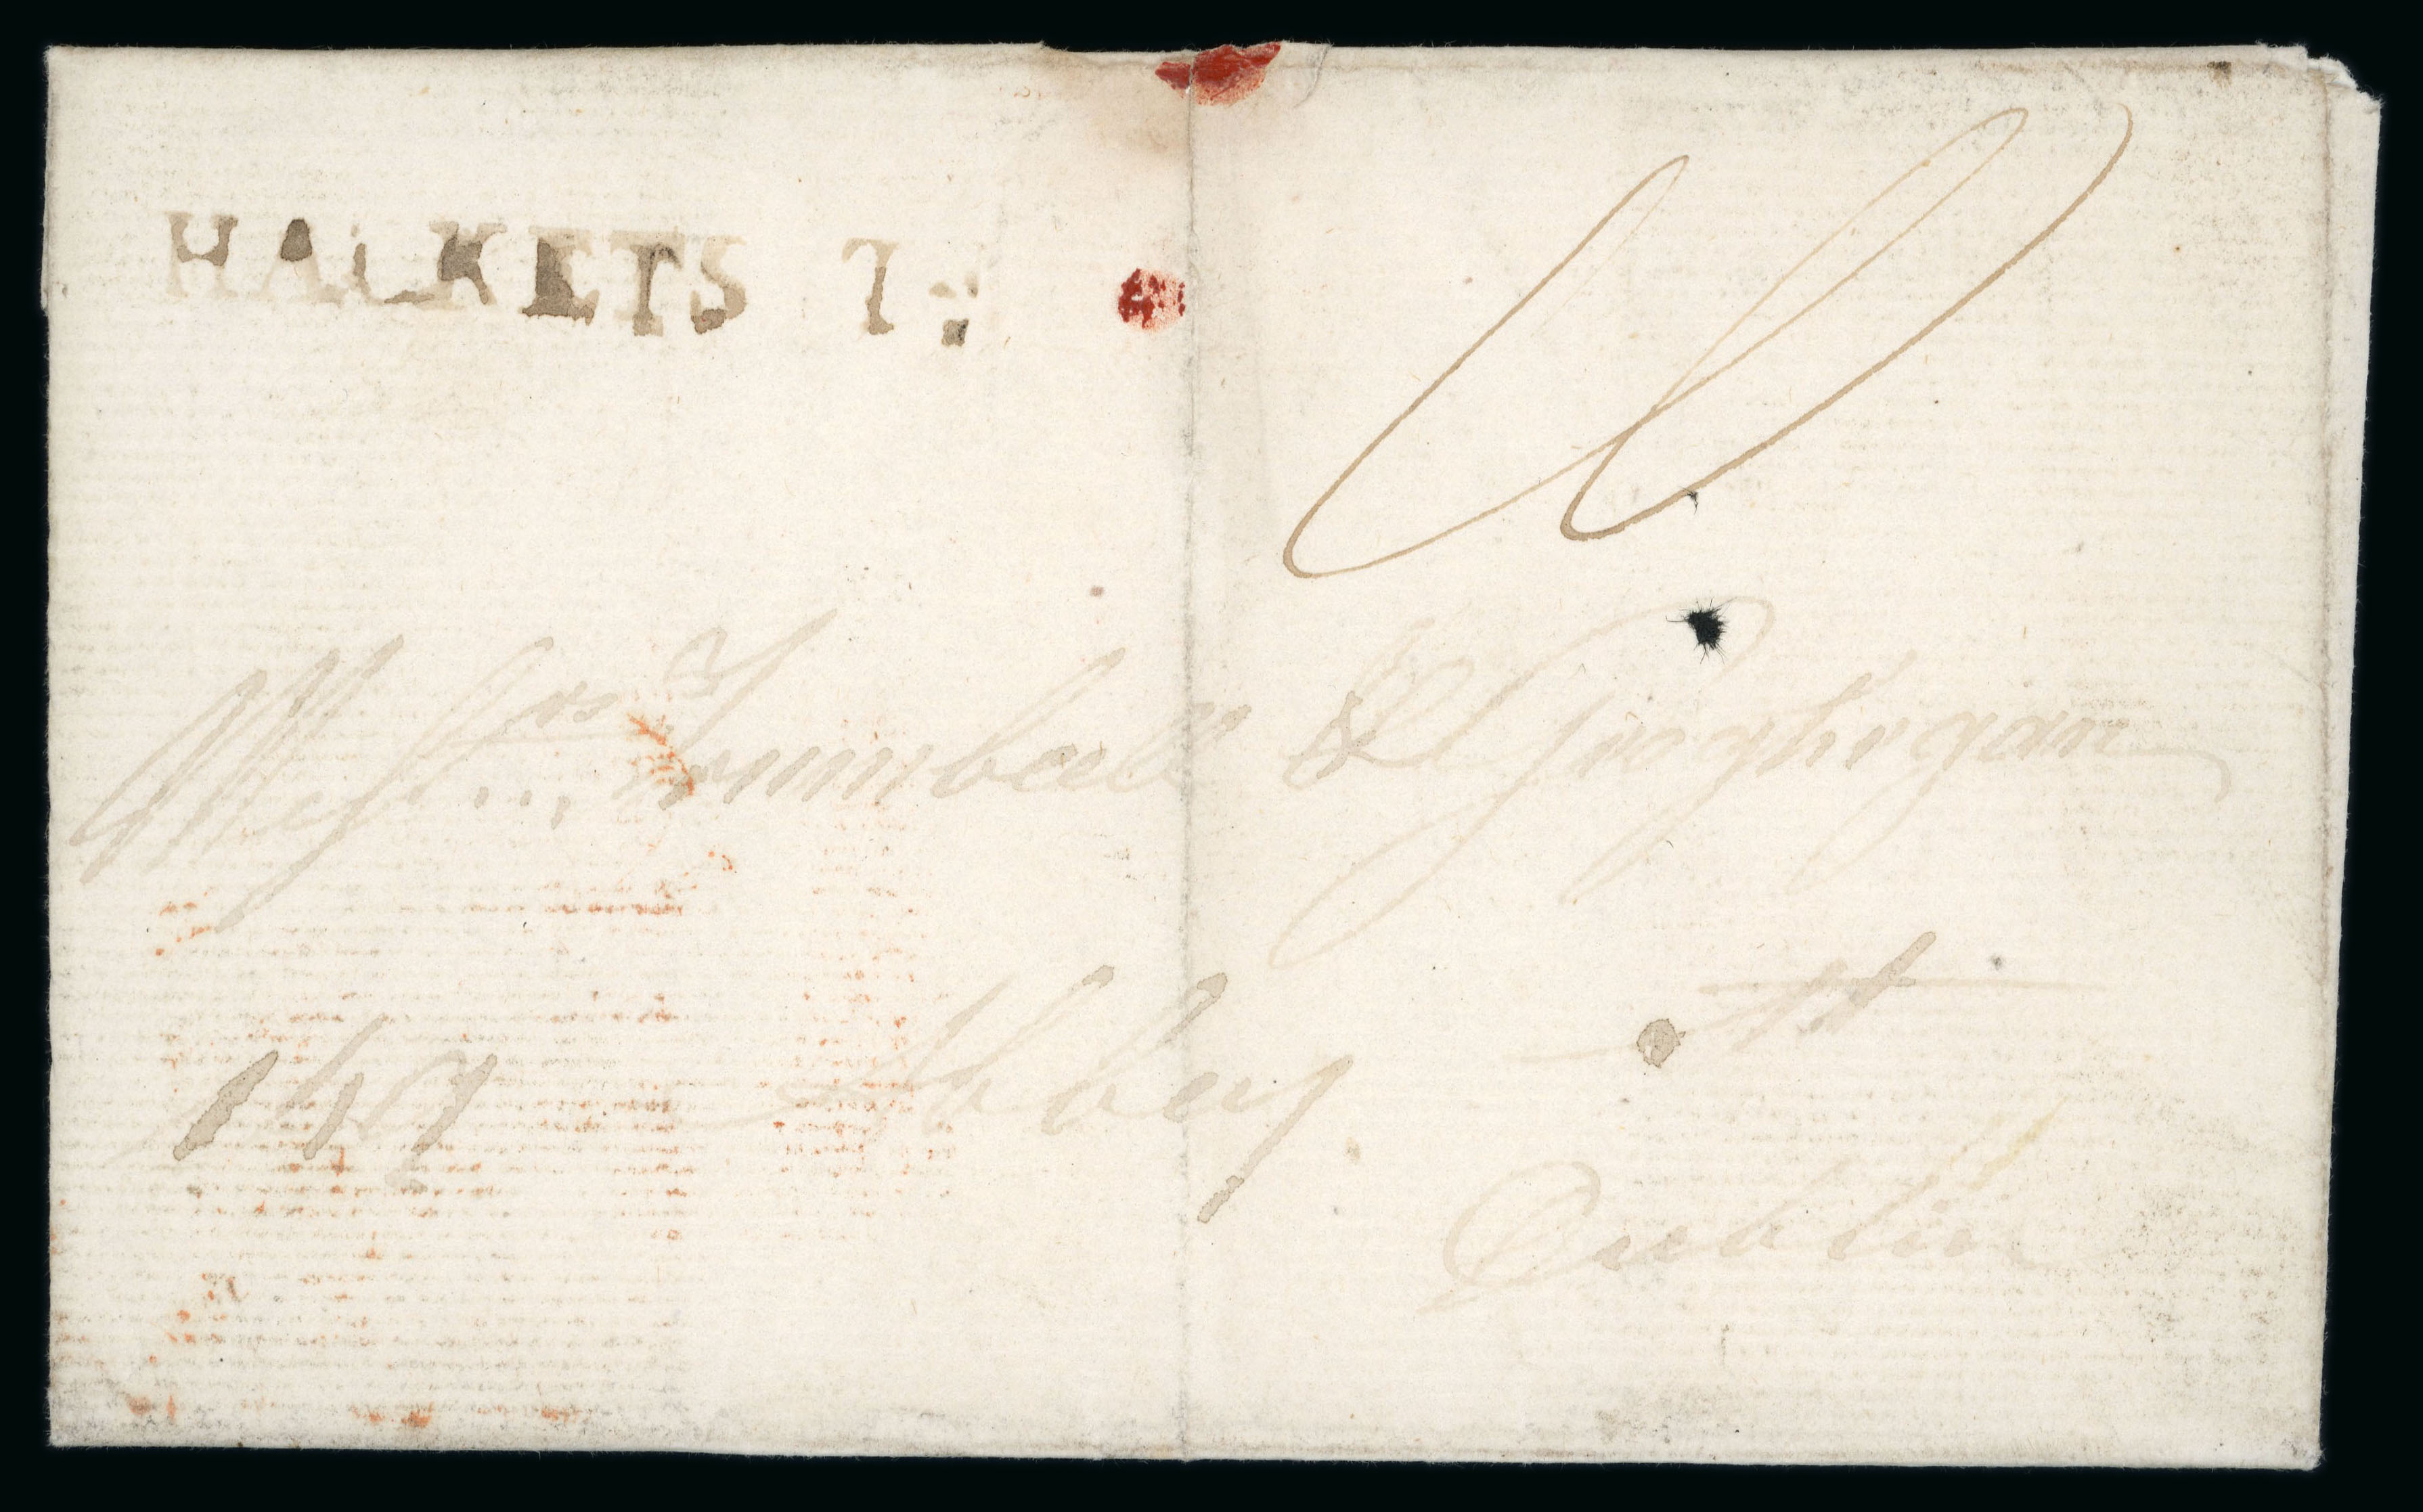 HACKETS T:
Messrs Trumbull & Geoghegan
149 Abbey St
Dublin